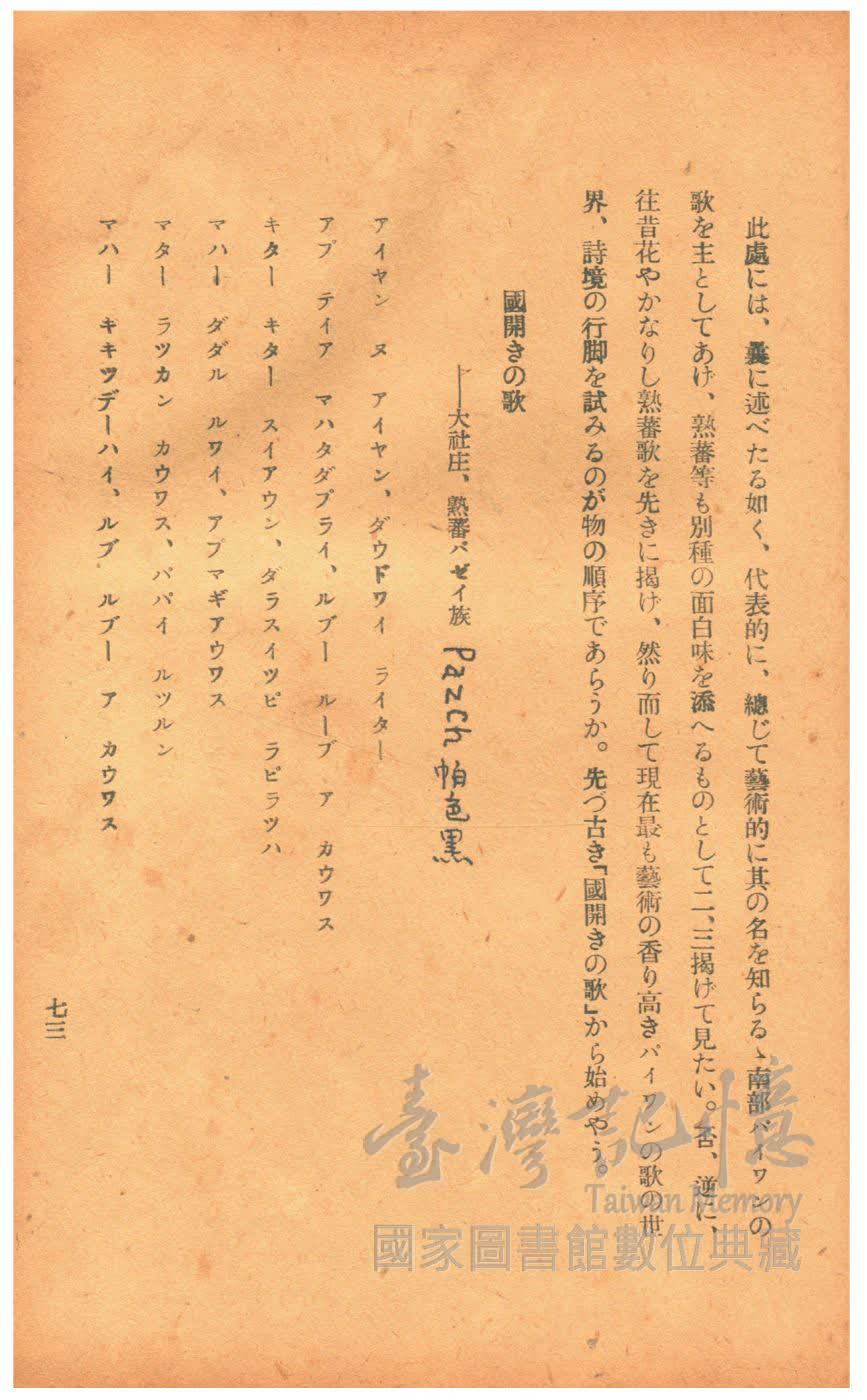 此處には、曩に述べたる如く、代表的に、總じて藝術的に其の名を知らるゝ南部パイワンの
歌を主としてあげ、熟蕃等も別種の面白味を添へるものとして二、三揭げて見たい。否、逆に、
往昔花やかなりし熟蕃歌を先きに揭げ、然り而して現在最も藝術の香り高きパイワンの歌の世
界、詩境の行脚を試みるのが物の順序であらうか。先づ古き「國開きの歌」から始めやう。
國開きの歌
――大社庄、熟蕃パゼイ族 Pazch 帕色黑
アイヤン ヌ アイヤン、ダウドワイ ライター
アブ テイア マハタダプライ、ルブー ルーブ ア カウワス
キター キター スイアウン、ダラスイツピ ラピラツハ
マハー ダダル ルワイ、アプマギアウワス
マター ラツカン カウワス、パパイ ルツルン
マハー キキツデーハイ、ルブ ルブー ア カウワス
七三
臺灣記憶
Taiwan Memory
國家圖書館數位典藏